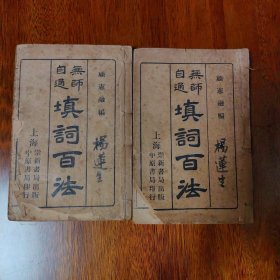 顧憲融編
無師自通
填詞百法
楊蓮生
上海
崇新書局出版
中原書局印行
顧憲融編
無師自通
填詞百法
楊蓮生
上海
崇新書局出版
中原書局印行